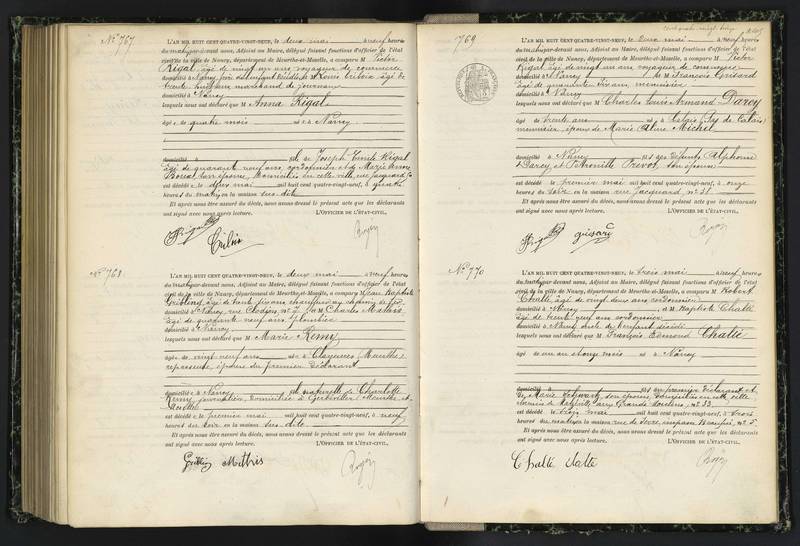 N° 767
L'AN MIL HUIT CENT QUATRE-VINGT-NEUF, le deux mai à neuf heures
du matin par-devant nous, Adjoint au Maire, délégué faisant fonctions d'officier de l'état
civil de la ville de Nancy, département de Meurthe-et-Moselle, a comparu M Victor
Rigal, âgé de vingt un ans voyageur de commerce
domicilié à Nancy, M Louis âgé de
trente huit ans marchand de journaux
domicilié à Nancy
lesquels nous ont déclaré que M Anna Rigal
âgé e de quatre mois né e à Nancy
domicilié de Joseph Emile Rigal
âgé de quarante neuf ans, cordonnier et de Marie Anne
son épouse, domiciliés en cette ville, rue Jacquard
est décédé e le deux mai mil huit cent quatre-vingt-neuf, à quatre
heures du matin en la maison sus-dite
Et après nous être assuré du décès, nous avons dressé le présent acte que les déclarants
ont signé avec nous après lecture. L'OFFICIER DE L'ÉTAT-CIVIL,
Rigal
N° 768
L'AN MIL HUIT CENT QUATRE-VINGT-NEUF, le deux mai à neuf heures
du matin par-devant nous, Adjoint au Maire, délégué faisant fonctions d'officier de l'état
civil de la ville de Nancy, département de Meurthe-et-Moselle, a comparu M Jean Baptiste
âgé de trente six ans chauffeur au chemin de fer
domicilié à Nancy rue Clodion, n° 7, M Charles
âgé de quarante neuf ans, plombier
domicilié à Nancy
lesquels nous ont déclaré que M Marie Remy
âgé e de vingt neuf ans né e à Clayeures (Meurthe)
repasseuse, épouse du premier déclarant
domicilié e à Nancy fille naturelle de Charlotte
Remy, domiciliée à Gerbéviller (Meurthe et
Moselle)
est décédé e le premier mai mil huit cent quatre-vingt-neuf, à neuf
heures du soir en la maison sus-dite
Et après nous être assuré du décès, nous avons dressé le présent acte que les déclarants
ont signé avec nous après lecture. L'OFFICIER DE L'ÉTAT-CIVIL,
769
L'AN MIL HUIT CENT QUATRE-VINGT-NEUF, le deux mai à neuf heures
du matin par-devant nous, Adjoint au Maire, délégué faisant fonctions d'officier de l'état
civil de la ville de Nancy, département de Meurthe-et-Moselle, a comparu M Victor
Rigal âgé de vingt un ans voyageur de commerce
domicilié à Nancy et M François Grisard
âgé de quarante six ans, menuisier
domicilié à Nancy
lesquels nous ont déclaré que M Charles Louis Armand Darcy
âgé de trente ans né à (Pas de Calais)
menuisier, époux de Marie Aline Michel
domicilié à Nancy fils des défunts Alphonse
Darcy et Prevost, son épouse
est décédé le premier mai mil huit cent quatre-vingt-neuf, à onze
heures du soir en la maison rue Jacquard n° 31
Et après nous être assuré du décès, nous avons dressé le présent acte que les déclarants
ont signé avec nous après lecture. L'OFFICIER DE L'ÉTAT-CIVIL,
Rigal grisard
N° 770
L'AN MIL HUIT CENT QUATRE-VINGT-NEUF, le trois mai à neuf heures
du matin par-devant nous, Adjoint au Maire, délégué faisant fonctions d'officier de l'état
civil de la ville de Nancy, département de Meurthe-et-Moselle, a comparu M Robert
Chatté, âgé de vingt deux ans cordonnier
domicilié à Nancy, et M Baptiste Chatté
âgé de trente neuf ans cordonnier
domicilié à Nancy, oncle de l'enfant décédé
lesquels nous ont déclaré que M François Edmond Chatté
âgé de un an onze mois né à Nancy
domicilié du premier déclarant et
de Marie Schwartz son épouse, domiciliés en cette ville
n° 33
est décédé le trois mai mil huit cent quatre-vingt-neuf, à trois
heures du matin en la maison rue de Serre, impasse Beaupré, n° 5
Et après nous être assuré du décès, nous avons dressé le présent acte que les déclarants
ont signé avec nous après lecture. L'OFFICIER DE L'ÉTAT-CIVIL,
Chatté Chatte